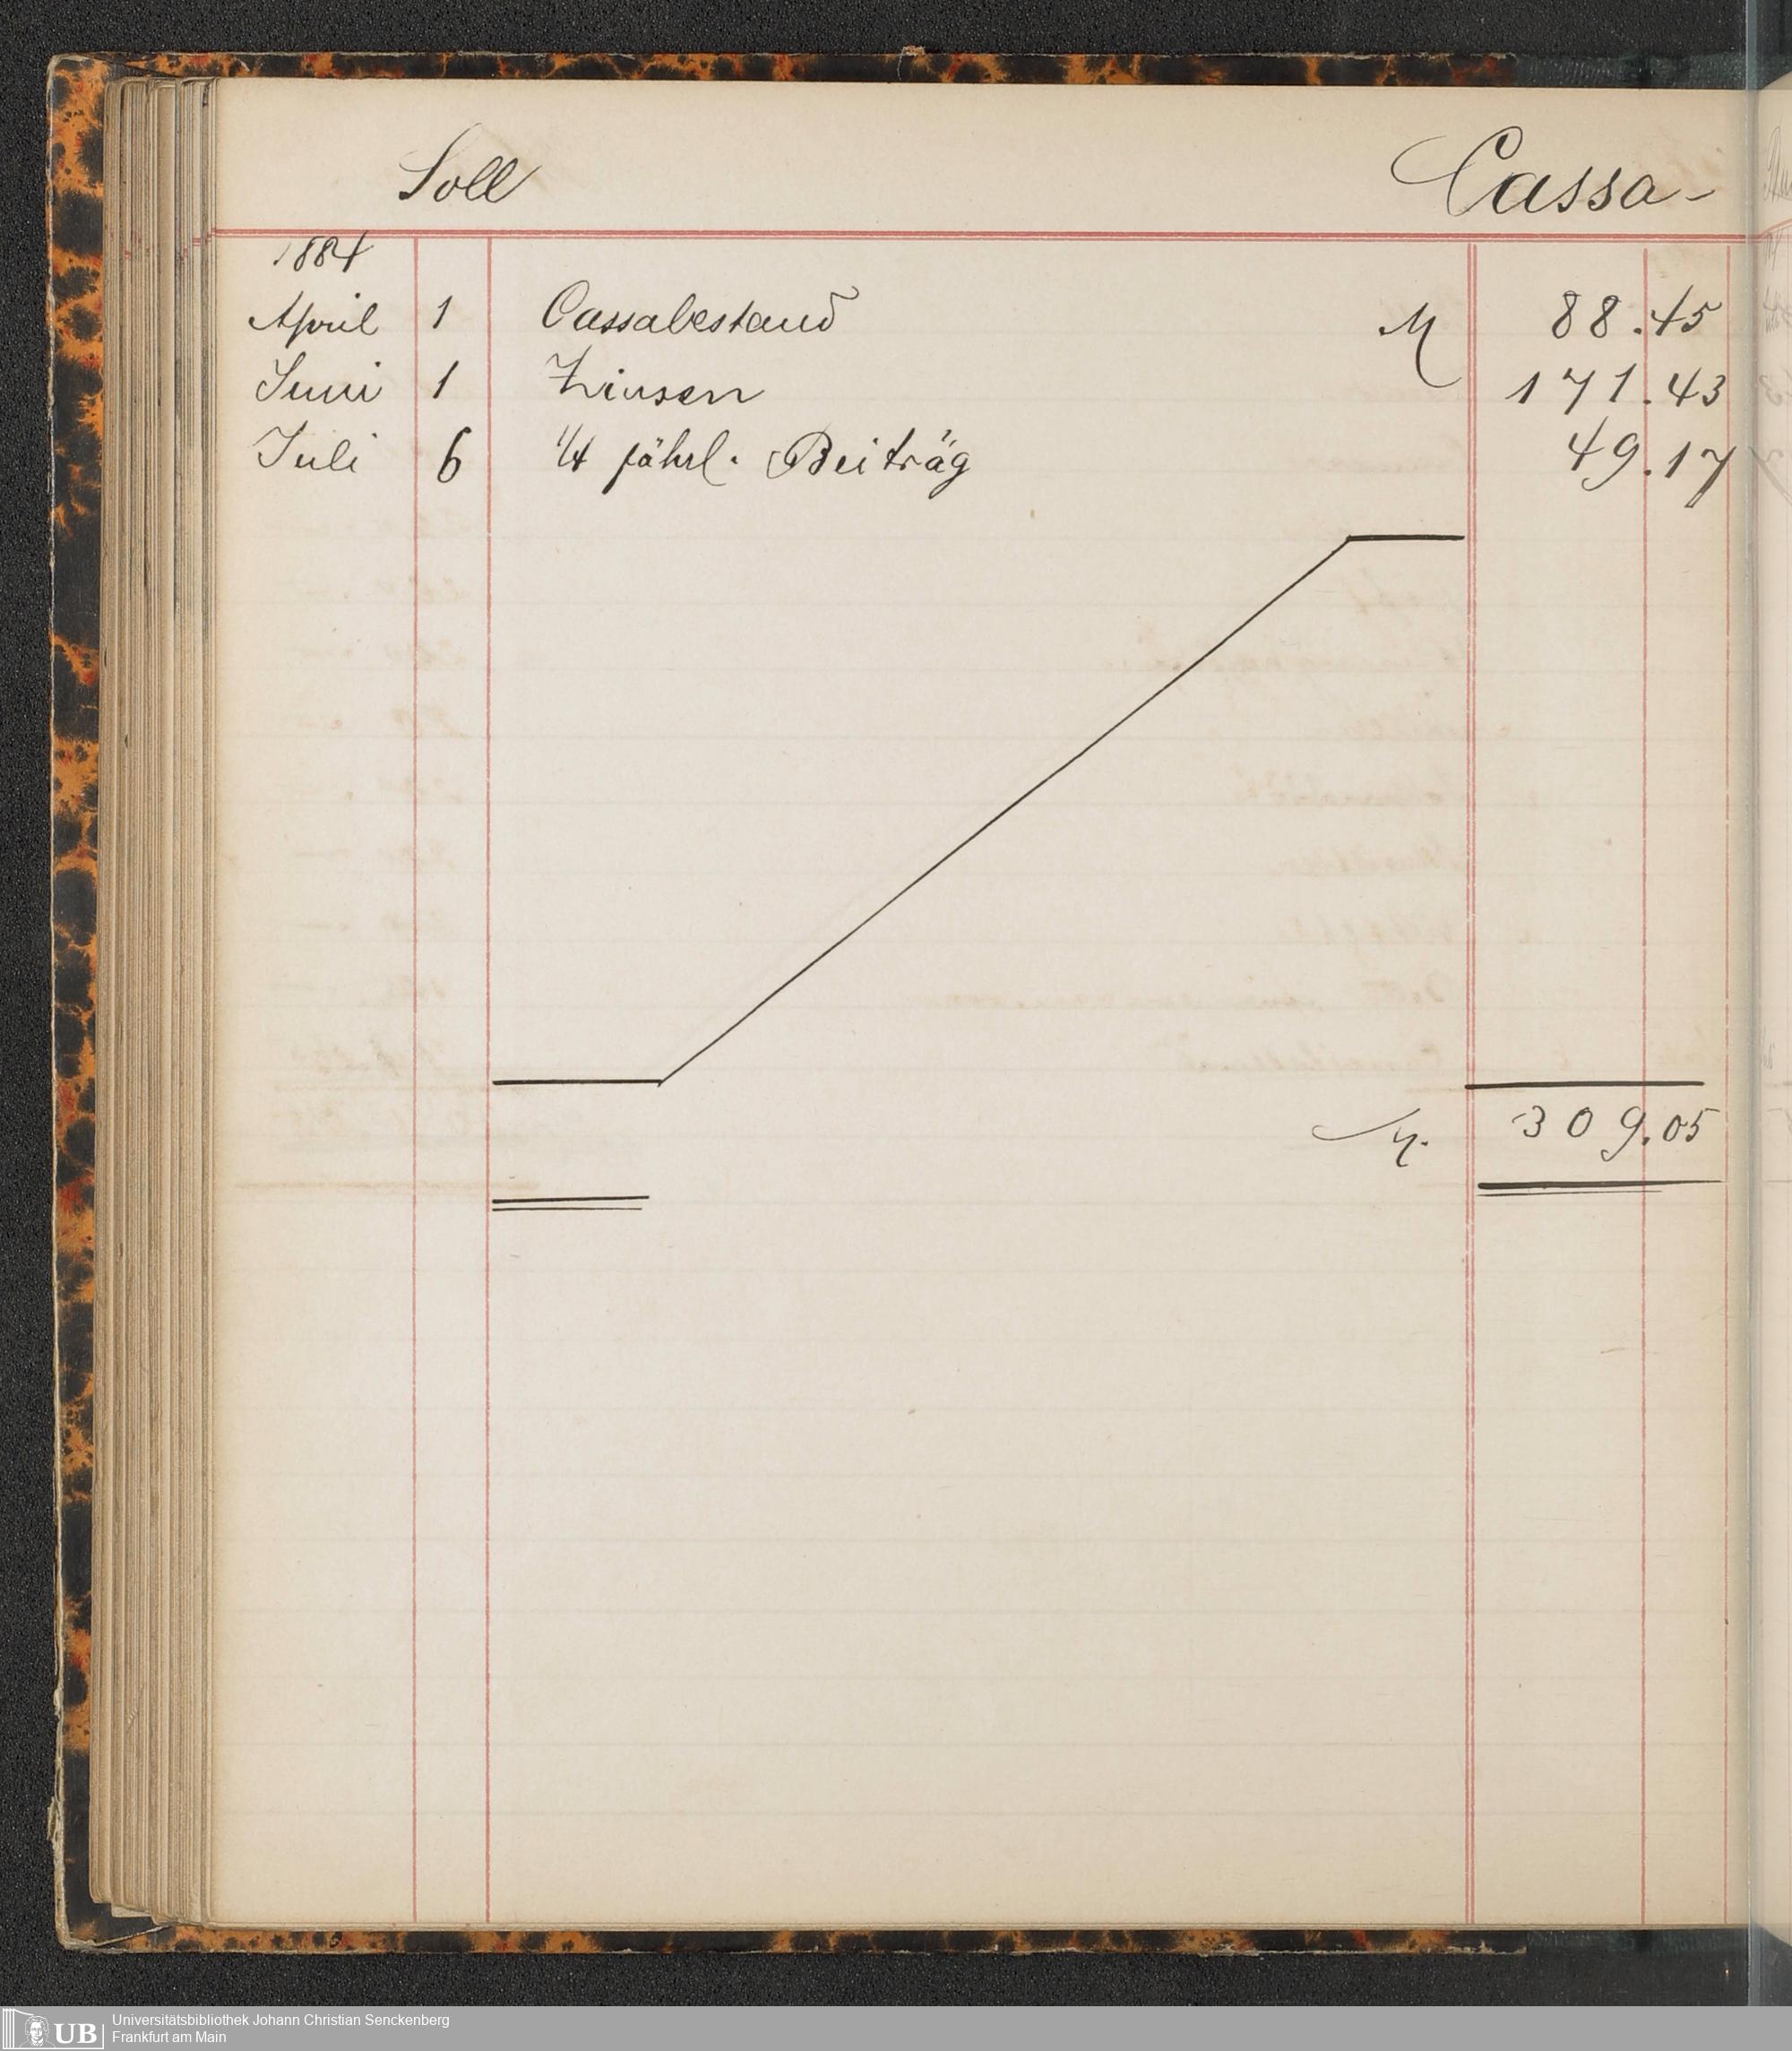 Soll Cassa-
1884
April 1 Cassabestand M 88.45
Juni 1 Zinsen 171.43
Juli 6 1/4 jährl. Beiträg 49.17
M. 309.05
UB Universitätsbibliothek Johann Christian Senckenberg
Frankfurt am Main